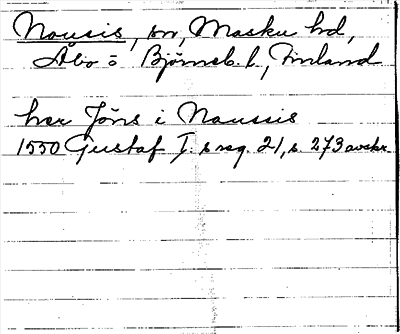 Nousis, sn, Masku hd,
Åbo o Björneb. l., Finland
her Jöns i Noussis
1550 Gustaf I. s reg. 21, s. 273 avskr.